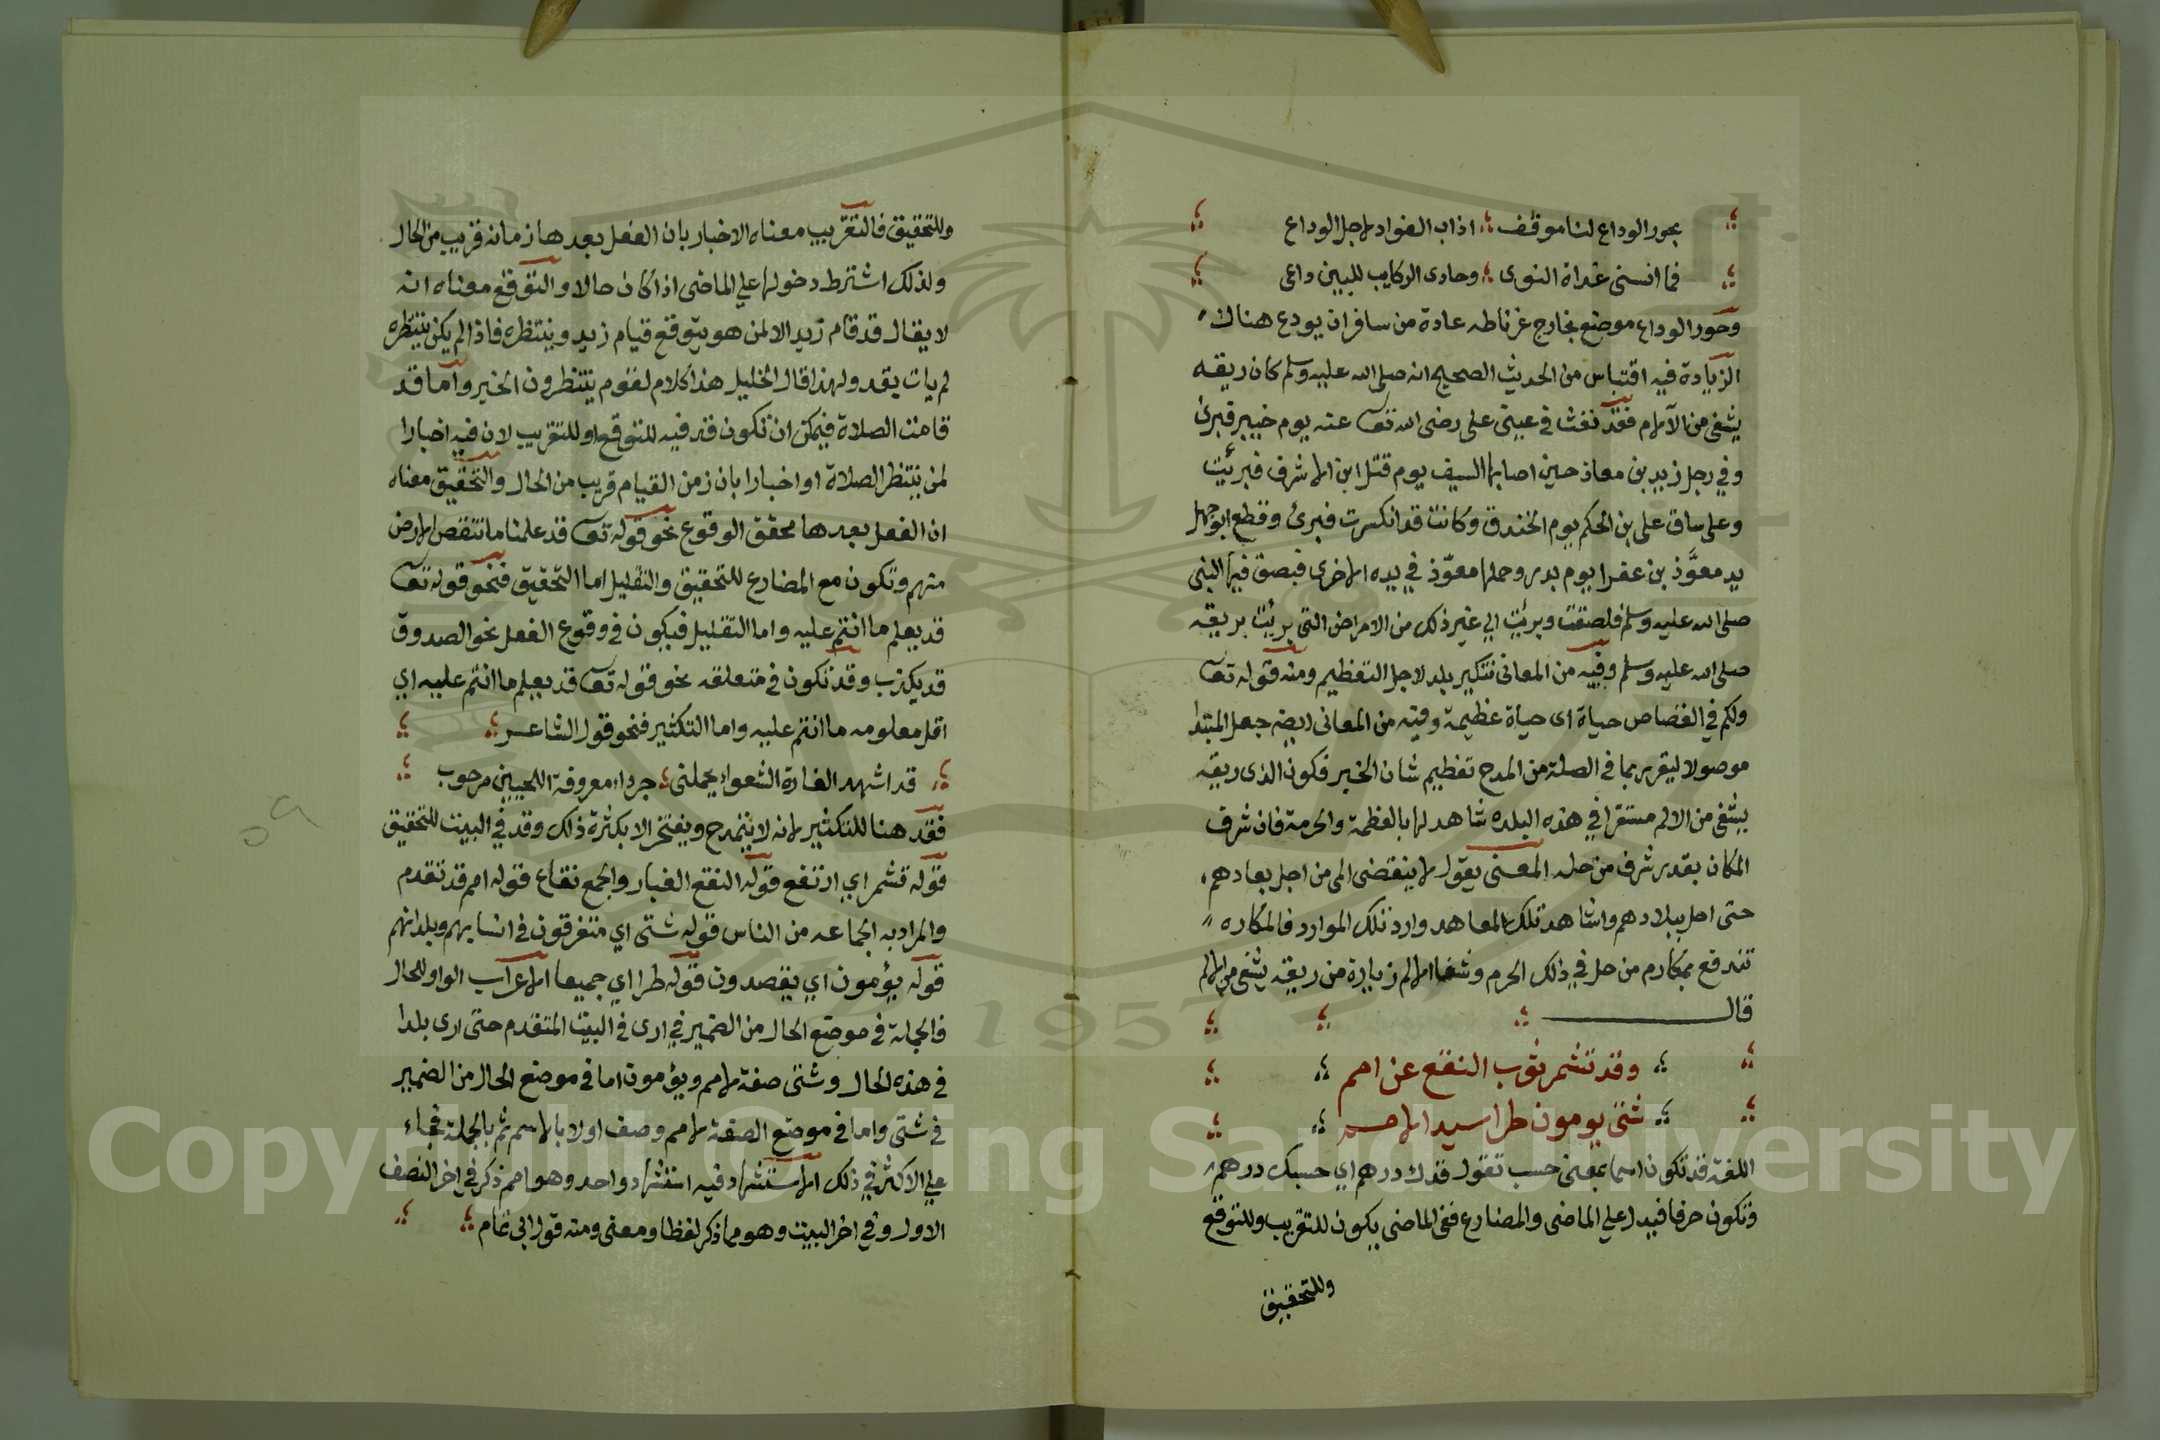 بحور الوداع لنا موقف ؛ اذاب الفواد لاجل الوداع
فما انسنى غداة النوى ؛ وحادى الركايب للبين داعى
وحور الوداع موضع بخارج غرناطه عادة من سافر ان يودع هناك
الزيادة فيه اقتباس من الحديث الصحيح انه صلى الله عليه وسلم كان ريقه
يشفى من الآلام فقد نفث فى عينى على رضى الله تعـ عنه يوم خيبر فبرئ
وفي رجل زيد بن معاذ حين اصابها السيف يوم قتل ابن الاشرف فبرئت
وعلى ساق على بن الحكم يوم الخندق وكانت قد انكسرت فبرئ وقطع ابو جهل
يد معوَّذ بن عفرا يوم بدر وحملها معوّذ في يده الاخرى فبصق فيها النبى
صلى الله عليه وسلم فلصقت وبرئت الي غير ذلك من الامراض التى برئت بريقه
صلى الله عليه وسلم وفيه من المعانى تنكير بلد لاجل التعظيم ومنه قوله تعـ
ولكم في القصاص حياة اى حياة عظيمة وفيه من المعانى ايضا جعل المبتدا
موصولا ليقرر بما فى الصلة من المدح تعظيم شان الخبر فكون الذى ريقه
يشفى من الالم مستقرا في هذه البلده شاهد لها بالعظمة والحرمة فان شرف
المكان بقدر شرف من حله المعنى يقول لا ينقضى المى من اجل بعادهم
حتى احل ببلادهم واشاهد تلك المعاهد وارد تلك الموارد فالمكاره
تندفع بمكارم من حل في ذلك الحرم وشفا الالم زيارة من ريقه يشفى من الالم
قال
وقد تشمر ثوب النقع عن امم
شتى يومون طرا سيد الامم
اللغة قد تكون اسما بمعنى حسب تقول قدك درهم اي حسبك درهم
وتكون حرفا فيدل على الماضى والمضارع ففى الماضى يكون للتقريب وللتوقع
وللتحقيق
وللتحقيق فالتقريب معناه الاخبار بان الفعل بعدها زمانه قريب من الحال
ولذلك اشترط دخولها على الماضى اذا كان حالا والتوقع معناه انه
لا يقال قد قام زيد الا لمن هو يتوقع قيام زيد وينتظره فاذا لم يكن ينتظره
لم يات بقد ولهذا قال الخليل هذا كلام لقوم ينتظرون الخبر واما قد
قامت الصلاة فيمكن ان تكون قد فيه للتوقع او للتقريب لان فيه اخبارا
لمن ينتظر الصلاة او اخبارا بان زمن القيام قريب من الحال والتحقيق معناه
ان الفعل بعدها محقق الوقوع نحو قوله تعـ قد علمنا ما تنقص الارض
منهم وتكون مع المضارع للتحقيق والتقليل اما التحقيق فنحو قوله تعـ
قد يعلم ما انتم عليه واما التقليل فيكون فى وقوع الفعل نحو الصدوق
قد يكذب وقد تكون فى متعلقه نحو قوله تعـ قد يعلم ما انتم عليه اي
اقل معلومه ما انتم عليه واما التكثير فنحو قول الشاعر
قد اشهد الغارة الشعواء يحملنى ؛ جرداء معروقة اللحيين سرحوب
فقد هنا للتكثير لانه لا يتمدح ويفتخر الا بكثرة ذلك وقد في البيت للتحقيق
قوله تشمر اي ارتفع قوله النقع الغبار والجمع نقاع قوله امم قد تقدم
والمراد به الجماعه من الناس قوله شتى اي متفرقون فى انسابهم وبلدانهم
قوله يؤمون اي يقصدون قوله طرا اي جميعا الاعراب الواو للحال
فالجملة فى موضع الحال من الضمير في ارى فى البيت المتقدم حتى ارى بلدا
فى هذه الحال وشتى صفة لامم ويؤمون اما فى موضع الحال من الضمير
فى شتى واما فى موضع الصفة لامم وصف اولا بالاسم ثم بالجملة فجاء
علي الاكثر في ذلك الاستشهاد فيه استشهاد واحد وهو امم ذكر في اخر النصف
الاول وفي اخر البيت وهو مما ذكر لفظا ومعنى ومنه قول ابى تمام
٥٩
1957
Copyright © King Saud University